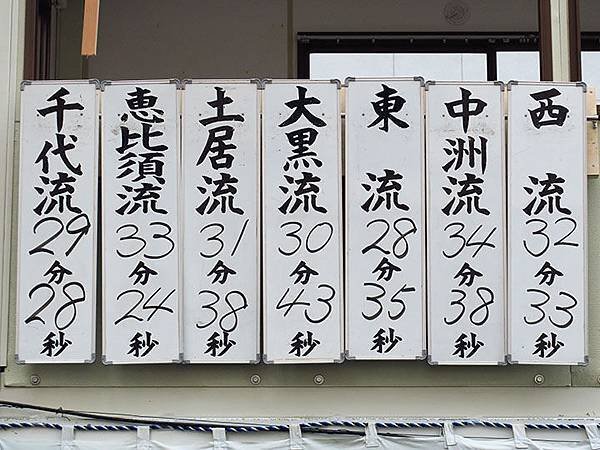 西流
32分
33秒
中洲流
34分
38秒
東流
28分
35秒
大黒流
30分
43秒
土居流
31分
38秒
恵比須流
33分
24秒
千代流
29分
28秒